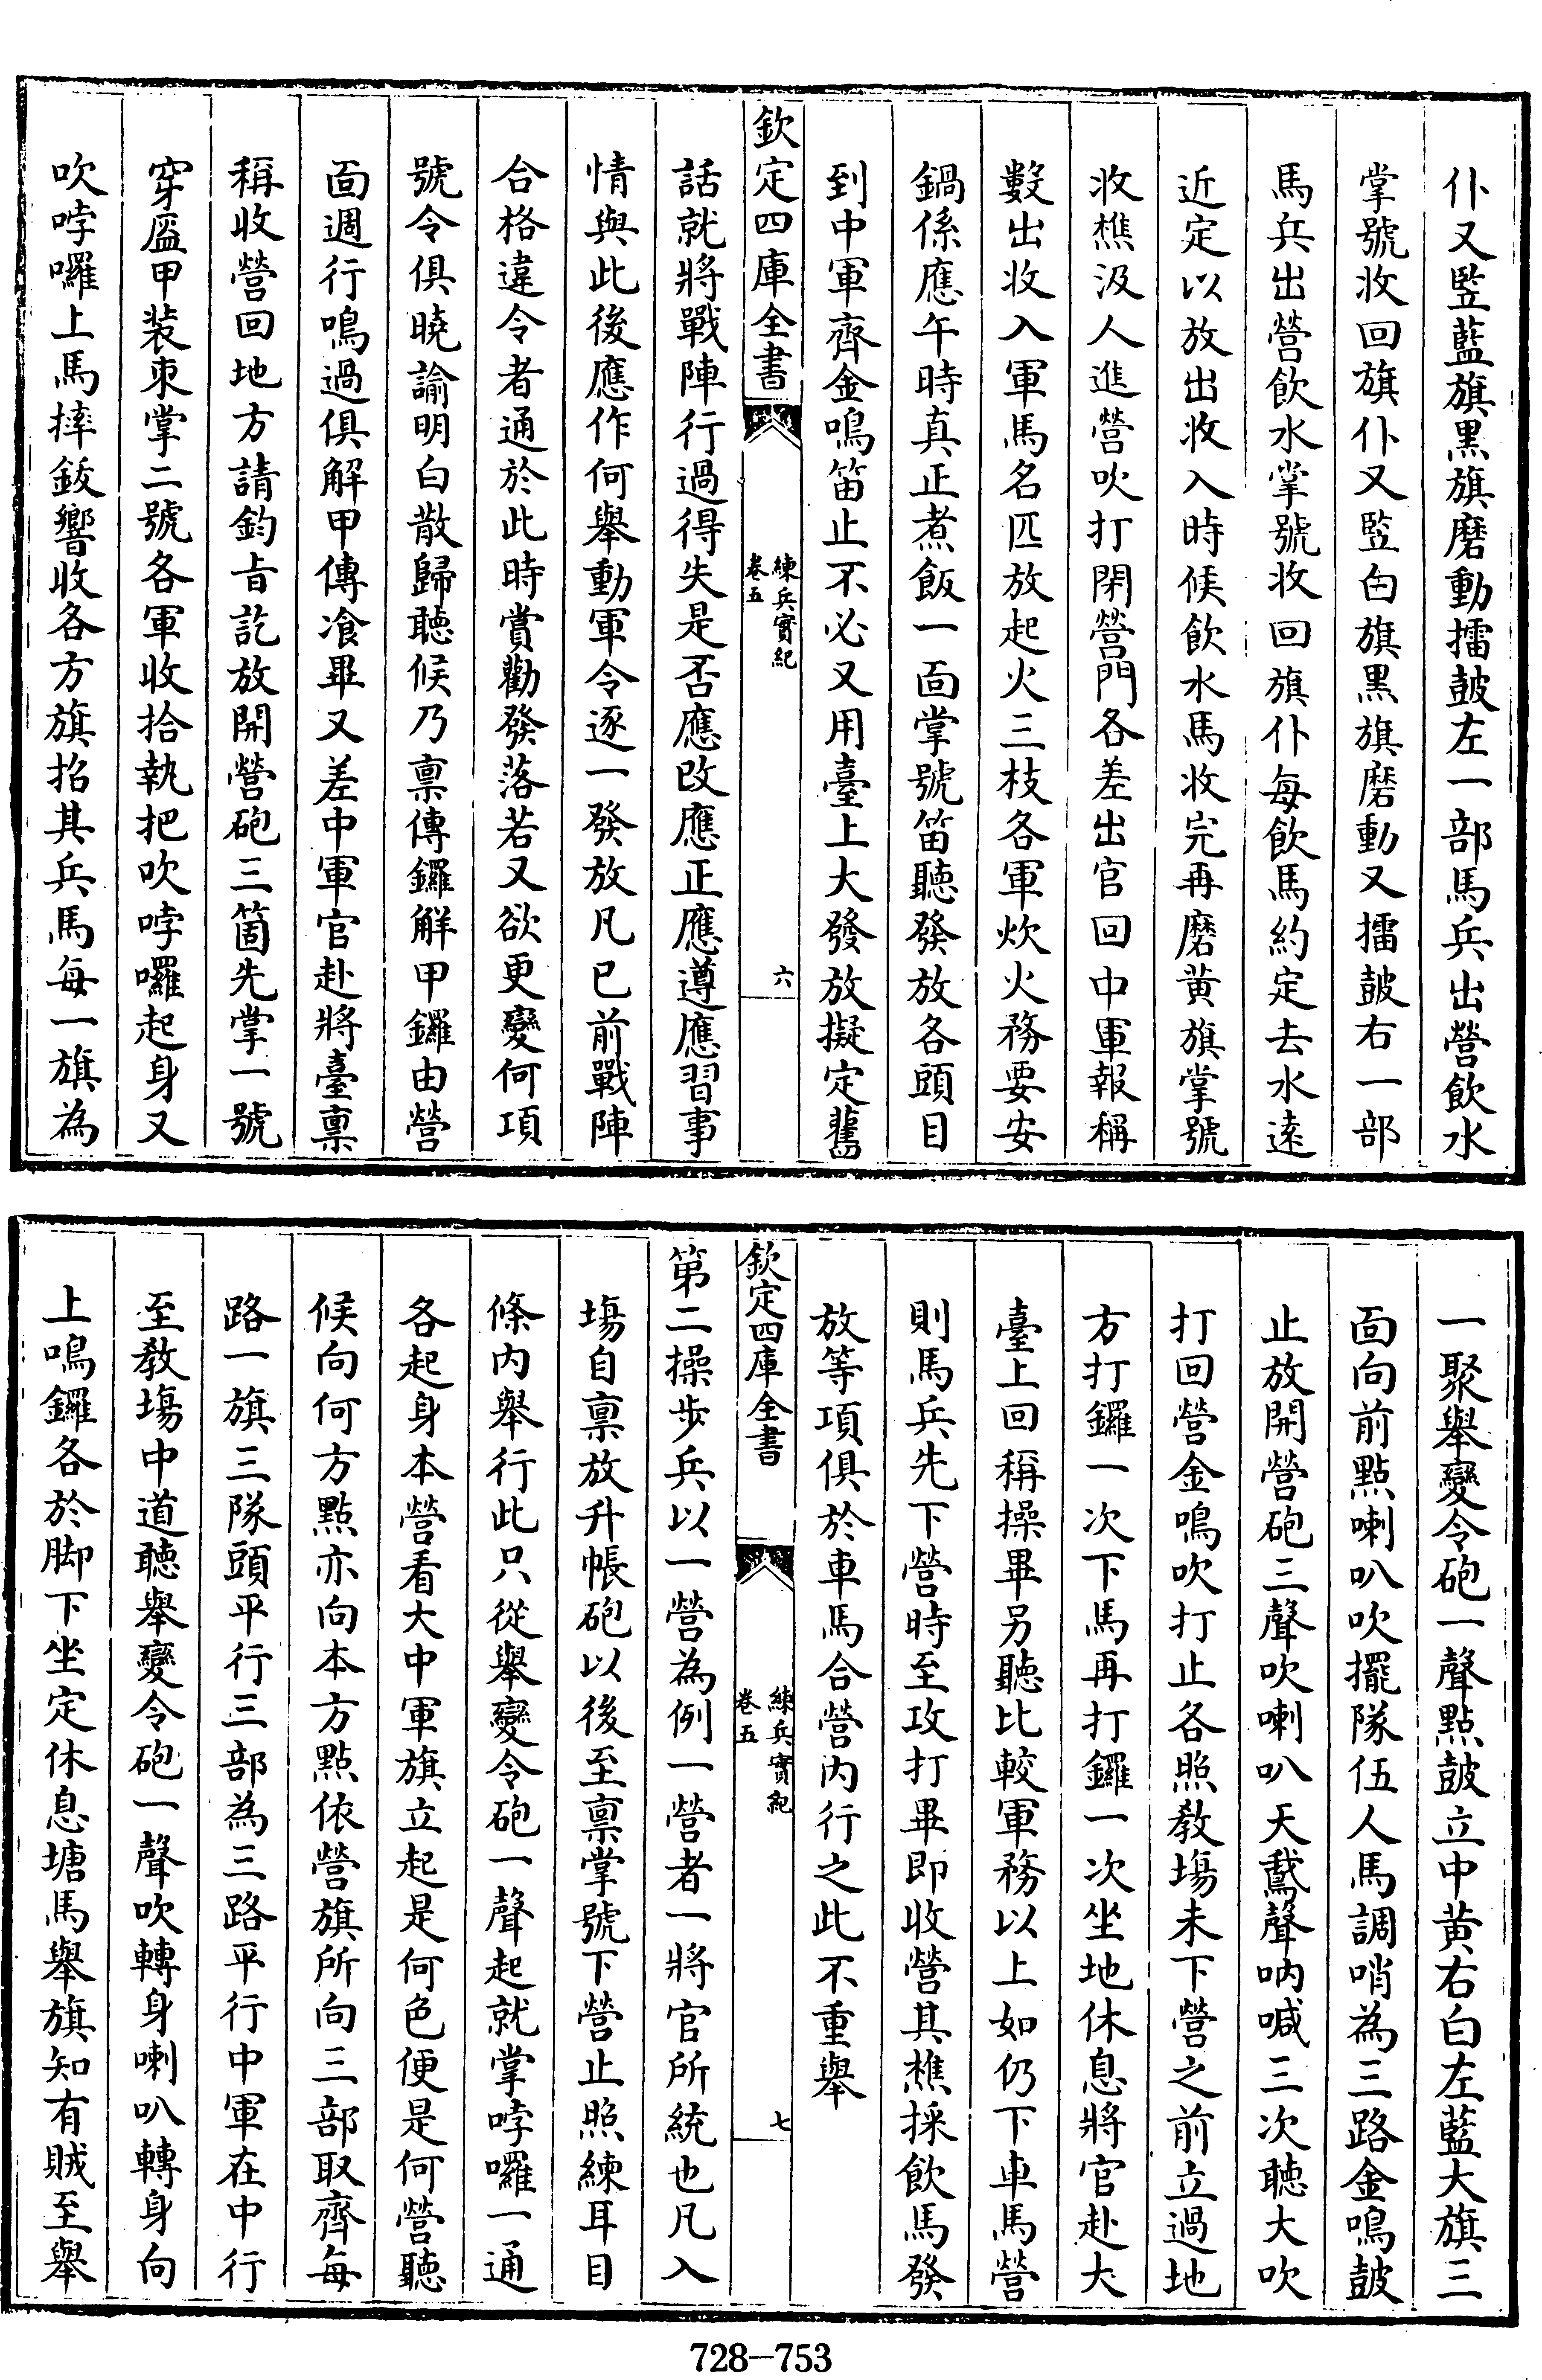 仆又竪藍旗黒旗磨動擂鼓左一部馬兵出營飲水
掌號收回旗仆又竪白旗黒旗磨動又擂鼓右一部
馬兵出營飲水掌號收回旗仆每飲馬約定去水逺
近定以放出收入時候飲水馬收完再磨黄旗掌號
收樵汲人進營吹打閉營門各差出官回中軍報稱
數出收入軍馬名匹放起火三枝各軍炊火務要安
鍋係應午時真正煮飯一面掌號笛聽發放各頭目
到中軍齊金鳴笛止不必又用臺上大發放擬定舊
欽定四庫全書
練兵實紀
卷五
六
話就將戰陣行過得失是否應改應正應遵應習事
情與此後應作何舉動軍令逐一發放凡已前戰陣
合格違令者通於此時賞勸發落若又欲更變何項
號令俱曉諭明白散歸聽候乃禀傳鑼解甲鑼由營
面週行鳴過俱解甲傳飡畢又差中軍官赴將臺禀
稱收營回地方請鈞㫖訖放開營砲三箇先掌一號
穿盔甲裝束掌二號各軍收拾執把吹哱囉起身又
吹哱囉上馬摔鈸響收各方旗招其兵馬每一旗為
一聚舉變令砲一聲點鼓立中黄右白左藍大旗三
面向前點喇叭吹擺隊伍人馬調哨為三路金鳴鼓
止放開營砲三聲吹喇叭天鵞聲吶喊三次聽大吹
打回營金鳴吹打止各照教塲未下營之前立過地
方打鑼一次下馬再打鑼一次坐地休息將官赴大
臺上回稱操畢另聽比較軍務以上如仍下車馬營
則馬兵先下營時至攻打畢即收營其樵採飲馬發
放等項俱於車馬合營内行之此不重舉
欽定四庫全書
練兵實紀
卷五
七
第二操步兵以一營為例一營者一將官所統也凡入
塲自禀放升帳砲以後至禀掌號下營止照練耳目
條内舉行此只從舉變令砲一聲起就掌哱囉一通
各起身本營看大中軍旗立起是何色便是何營聽
候向何方點亦向本方點依營旗所向三部取齊每
路一旗三隊頭平行三部為三路平行中軍在中行
至教塲中道聽舉變令砲一聲吹轉身喇叭轉身向
上鳴鑼各於脚下坐定休息塘馬舉旗知有賊至舉
728—753